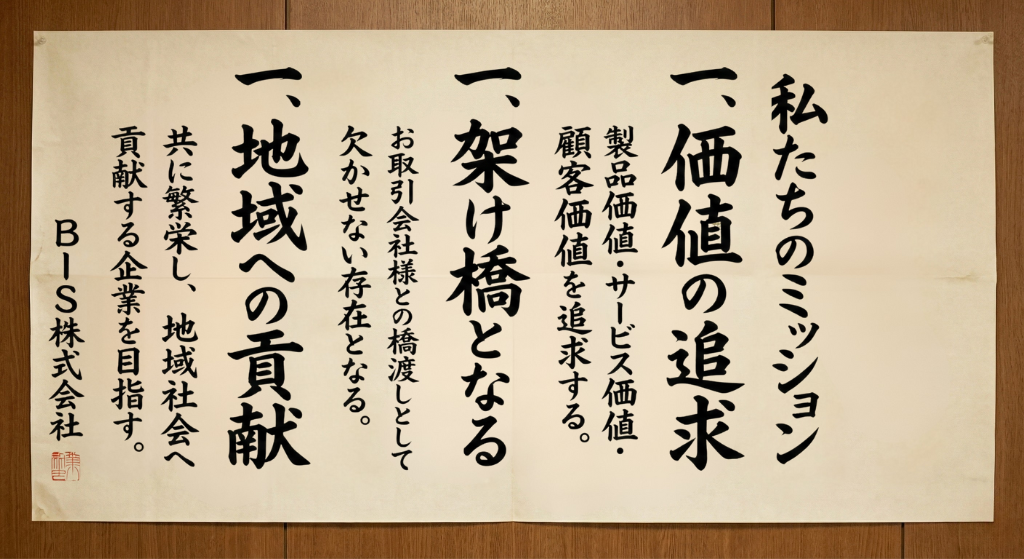 私たちのミッション
一、価値の追求
製品価値・サービス価値・
顧客価値を追求する。
一、架け橋となる
お取引会社様との橋渡しとして
欠かせない存在となる。
一、地域への貢献
共に繁栄し、地域社会へ
貢献する企業を目指す。
BIS株式会社